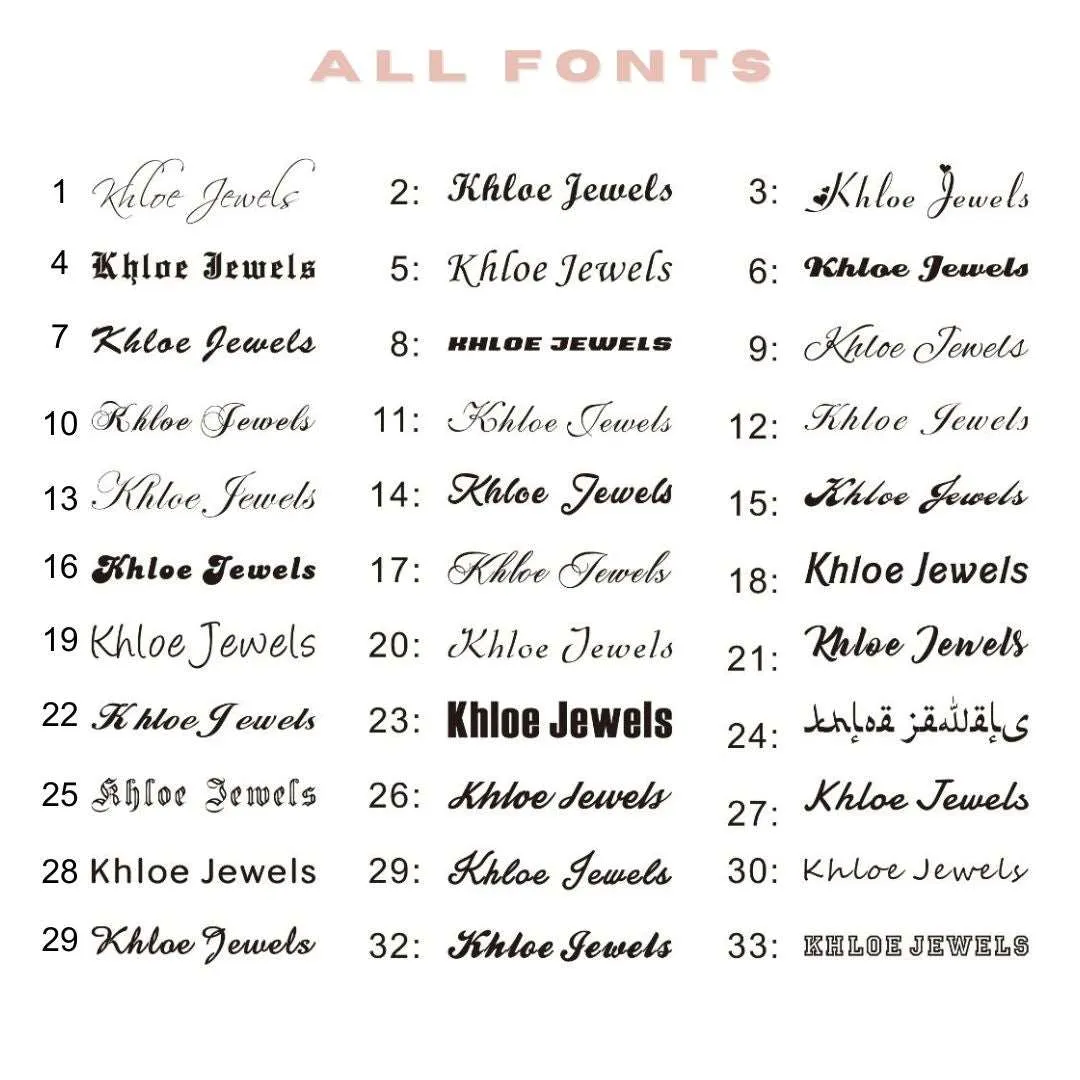 ALL FONTS
1 Khloe Jewels 2: Khloe Jewels 3: Khloe Jewels
4 Khloe Jewels 5: Khloe Jewels 6: Khloe Jewels
7 Khloe Jewels 8: KHLOE JEWELS 9: Khloe Jewels
10 Khloe Jewels 11: Khloe Jewels 12: Khloe Jewels
13 Khloe Jewels 14: Khloe Jewels 15: Khloe Jewels
16 Khloe Jewels 17: Khloe Jewels 18: Khloe Jewels
19 Khloe Jewels 20: Khloe Jewels 21: Khloe Jewels
22 Khloe Jewels 23: Khloe Jewels 24: Khloe Jewels
25 Khloe Jewels 26: Khloe Jewels 27: Khloe Jewels
28 Khloe Jewels 29: Khloe Jewels 30: Khloe Jewels
29 Khloe Jewels 32: Khloe Jewels 33: KHLOE JEWELS